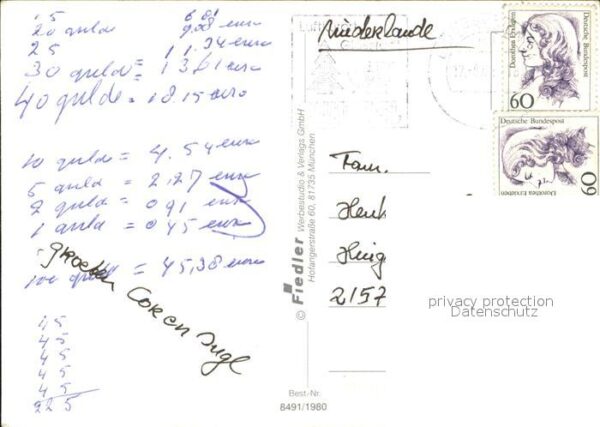 15 6 81
20 gulde 9.08 euro
25 11.34 euro
30 gulde = 13.61 euro
40 gulde = 18.15 euro
10 gulde = 4.54 euro
5 guld = 2.27 euro
2 gulde = 0.91 euro
1 guld = 0.45 euro
groeten Cor en Ingl
100 = 45,38 euro
1,5
45
45
45
45
225
© Fiedler Werbestudio & Verlags GmbH
Hofangerstraße 60, 81735 München
Best-Nr.
8491/1980
Niederlande
Fam.
Henk
Hing
2157
Dorothea Erxleben
Deutsche Bundespost
60
Deutsche Bundespost
Dorothea Erxleben
60
privacy protection
Datenschutz